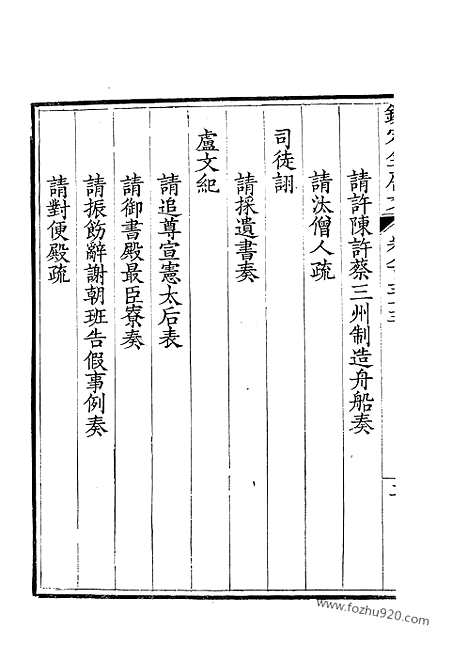 請許陳許蔡三州制造舟船奏
請汰僧人疏
司徒詡
請採遺書奏
盧文紀
請追尊宣憲太后表
請御書殿最臣寮奏
請振飭辭謝朝班告假事例奏
請對便殿疏
www.fozhu920.com